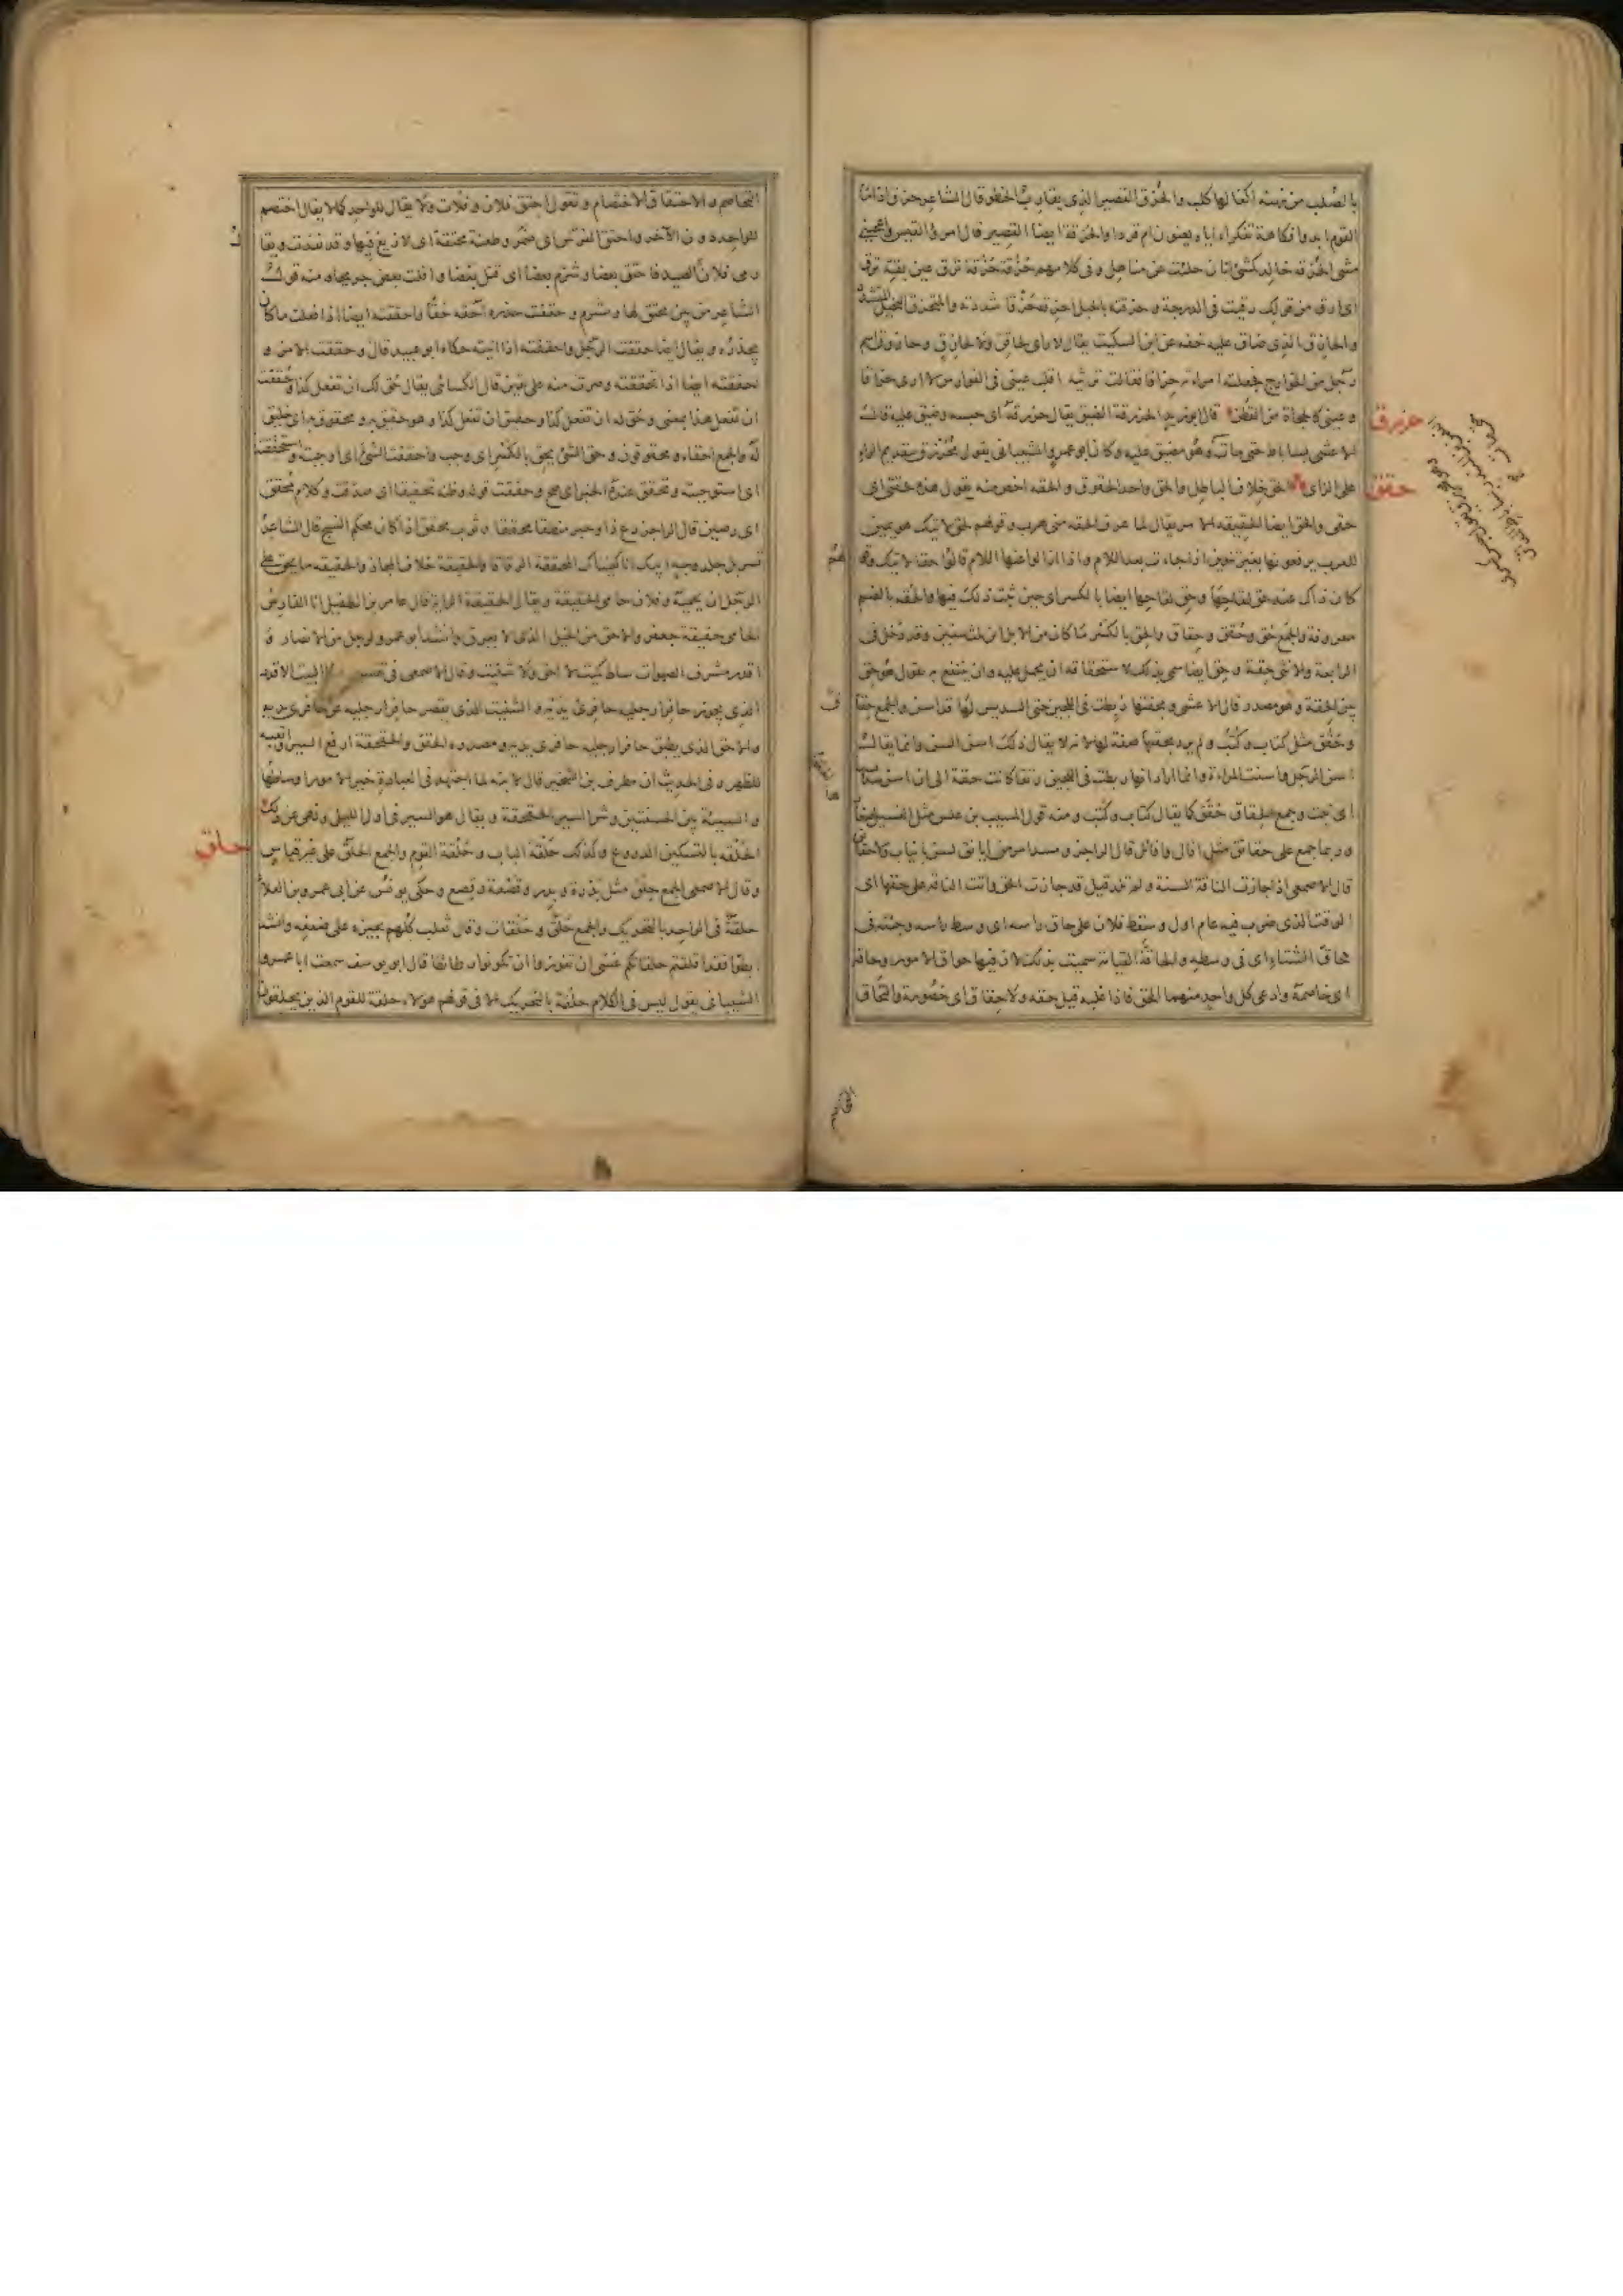 بالصلب من خرسه اكفالها كلب والحزق القصير الذي يقارب الخطو قال الشاعر حزق اذا ما
القوم ابدوا فكاهة تفكر اياه يعنون ام قردا والحزقة ايضا القصير قال امرؤ القيس واعجبني
مشي الحزقة خالد كمشي اتان حلئت عن مناهل وفي كلامهم حزقة حزقة ترق عين بقة ترق
اي ارق من قولك رقيت في الدرجة وحزقته بالحبل احزقه حزقا شددته والمتحزق البخيل المتشدد
والحازق الذي ضاق عليه خفه عن ابن السكيت يقال لا راي لحاقن ولا لحازق وحازوق اسم
رجل من الخوارج فجعلته امراته حزاقا فقالت ترثيه اقلب عيني في الفوارس لا ارى حزاقا
وعيني كالحجاة من القطر قال ابو زيد الحزرقة الضيق يقال حزرقه اي حبسه وضيق عليه قال
الاعشى بساباط حتى مات وهو محزرق عليه وكان ابو عمرو الشيباني يقول محرزق بتقديم الراء
على الزاي الحق خلاف الباطل والحق واحد الحقوق والحقة اخص منه يقول هذه حقتي اي
حقي والحق ايضا الحقيقة الامر يقال لما عرف الحقة مني هرب وقولهم لحق لا آتيك هو يمين
للعرب يرفعونها بغير تنوين اذا جاءت بعد اللام واذا ازالوا عنها اللام قالوا حقا لا آتيك وقولهم
كان ذاك عند حق لقاحها وحق لقاحها ايضا بالكسر اي حين ثبت ذلك فيها والحقة بالضم
معروفة والجمع حق وحقق وحقاق والحق بالكسر ما كان من الابل ابن ثلث سنين وقد دخل في
الرابعة والانثى حقة وحق ايضا سمي بذلك لاستحقاقه ان يحمل عليه وان ينتفع به تقول هو حق
بين الحقة وهو مصدر قال الاعشى بحقتها ربطت في اللجين حتى السديس لها قد اسن والجمع حقاق
وحقق مثل كتاب وكتب ولم يرد بحقتها صفة لها لانه لا يقال ذلك اسن السن وانما يقال
اسن الرجل واسنت المراة وانما اراد انها ربطت في اللجين وقتا كانت حقة الى ان اسن سديسها
اي نبت وجمع الحقاق حقق كما يقال كتاب وكتب ومنه قول المسيب بن علس مثل الفسيل صغارها
وربما جمع على حقائق مثل افال وافائل قال الراجز ومسد امر من ايانق لسن بانياب ولا حقائق
قال الاصمعي اذا جازت الناقة السنة ولم تلد قيل قد جازت الحق واتت الناقة على حقها اي
الوقت الذي ضرب فيه عام اول وسقط فلان على حاق راسه اي وسط راسه وجئته في
حاق الشتاء اي في وسطه والحاقة القيامة سميت بذلك لان فيها حواق الامور وحاقه
اي خاصمه وادعى كل واحد منهما الحق فاذا غلبه قيل حقه ولا حقاق اي خصومة والتحاق
حزرق
حقق
التخاصم والاحتقاق الاختصام وتقول احتق فلان وفلان ولا يقال للواحد كما لا يقال اختصم
للواحد دون الآخر واحتق الفرس اي ضمر وطعنة محتقة اي لا زيغ فيها وقد نفذت ويقال
رمى فلان الصيد فاحتق بعضا وشرم بعضا اي قتل بعضا وافلت بعض جريحا ومنه قول
الشاعر من بين محتق لها ومشرم وحققت حذره احقه حقا واحققته ايضا اذا فعلت ما كان
يحذره ويقال ايضا حققت الرجل واحققته اذا اتيته حكاه ابو عبيد قال وحققت الامر و
احققته ايضا اذا تحققته وصرت منه على يقين قال الكسائي يقال حق لك ان تفعل كذا وحققت
ان تفعل هذا بمعنى وحق له ان تفعل كذا وحقيق ان تفعل كذا وهو حقيق به ومحقوق به اي خليق
له والجمع احقاء ومحقوقون وحق الشئ يحق بالكسر اي وجب واحققت الشئ اي اوجبته واستحققته
اي استوجبته وتحقق عنده الخبر اي صح وحققت قوله وظنه تحقيقا اي صدقت وكلام محقق
اي رصين قال الراجز دع ذا وحبر منطقا محققا وثوب محقق اذا كان محكم النسج قال الشاعر
تسربل جلد وجه ابيك انا كفيناك المحققة الرقاقا والحقيقة خلاف المجاز والحقيقة ما يحق على
الرجل ان يحميه وفلان حامي الحقيقة ويقال الحقيقة الراية قال عامر بن الطفيل انا الفارس
الحامي حقيقة جعفر والاحق من الخيل الذي لا يعرق وانشد ابو عمرو لرجل من الانصار و
اقدر مشرف الصهوات ساط كميت لا احق ولا شئيت وقال الاصمعي في تفسير البيت الاقدر
الذي يجوز حافرا رجليه حافري يديه والشئيت الذي يقصر حافرا رجليه عن حافري يديه
والاحق الذي يطبق حافرا رجليه حافري يديه ومصدره الحقق والحقحقة ارفع السير واتعبه
للظهر وفي الحديث ان مطرف بن الشخير قال لابنه لما اجتهد في العبادة خير الامور اوساطها
والسيئة بين الحسنتين وشر السير الحقحقة ويقال هو السير في اول الليل ونهي عن ذلك
الحلقة بالتسكين الدروع وكذلك حلقة الباب وحلقة القوم والجمع الحلق على غير قياس
وقال الاصمعي الجمع حلق مثل بدرة وبدر وقصعة وقصع وحكى يونس عن ابي عمرو بن العلاء
حلقة في الواحد بالتحريك والجمع حلق وحلقات وقال ثعلب كلهم يجيزه على ضعفه وانشد
قال ابو يوسف سمعت ابا عمرو
الشيباني يقول ليس في الكلام حلقة بالتحريك الا في قولهم هولاء حلقة للقوم الذين يحلقون
حلق